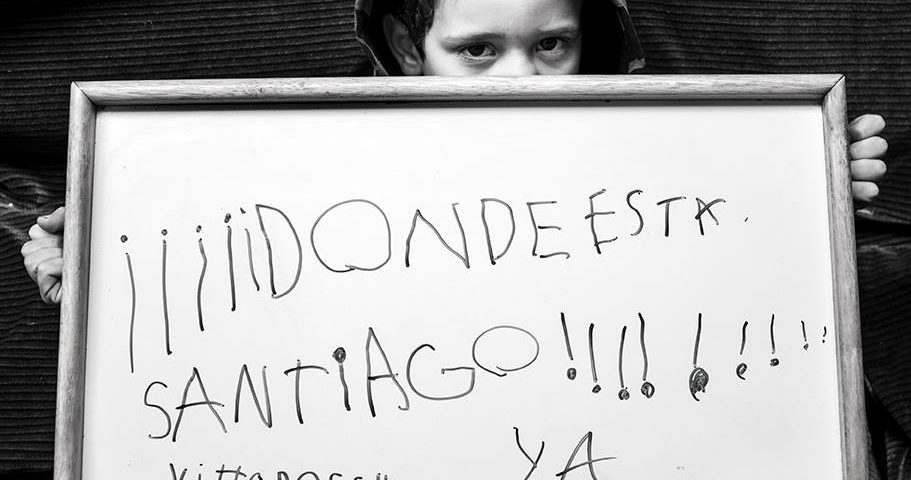 ¡¡¡¡¡DONDE ESTA.
SANTiAGO!!!!!!!!!
YA